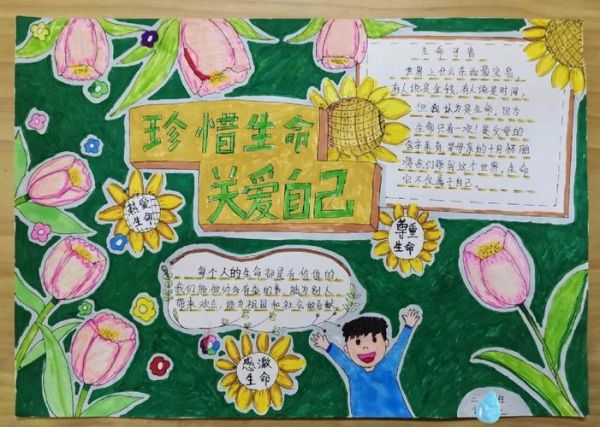 珍惜生命
关爱自己
生命可贵
世界上什么东西最宝贵，
有人说是金钱，有人说是时间，
但我认为是生命，因为
生命只有一次！是父母的
含辛茹苦，是母亲的十月怀胎
将我们带到这个世界，生命
它不仅属于自己。
热爱
生命
尊重
生命
每个人的生命都是有价值的
我们能做许多有益的事，能为别人
带来欢乐，能为祖国和社会做贡献。
感激
生命
班